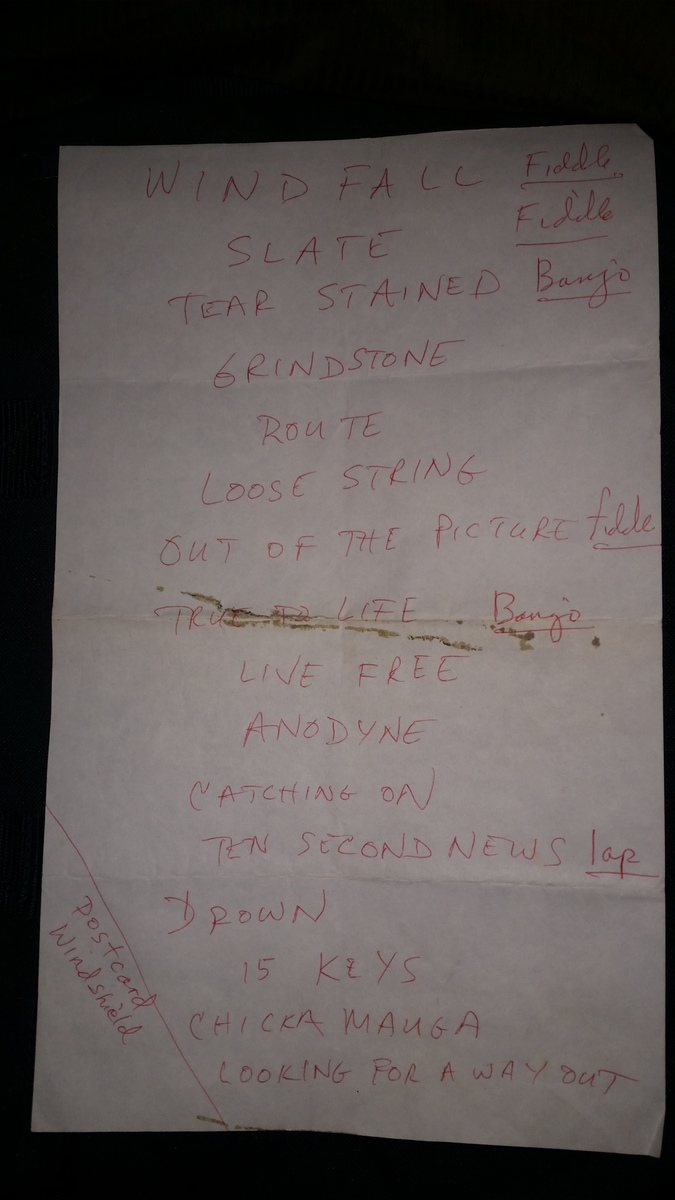 WINDFALL Fiddle
SLATE Fiddle
TEAR STAINED Banjo
GRINDSTONE
ROUTE
LOOSE STRING
OUT OF THE PICTURE fiddle
TRUE TO LIFE Banjo
LIVE FREE
ANODYNE
CATCHING ON
TEN SECOND NEWS lap
DROWN
15 KEYS
CHICKAMAUGA
LOOKING FOR A WAY OUT
postcard
Windshield